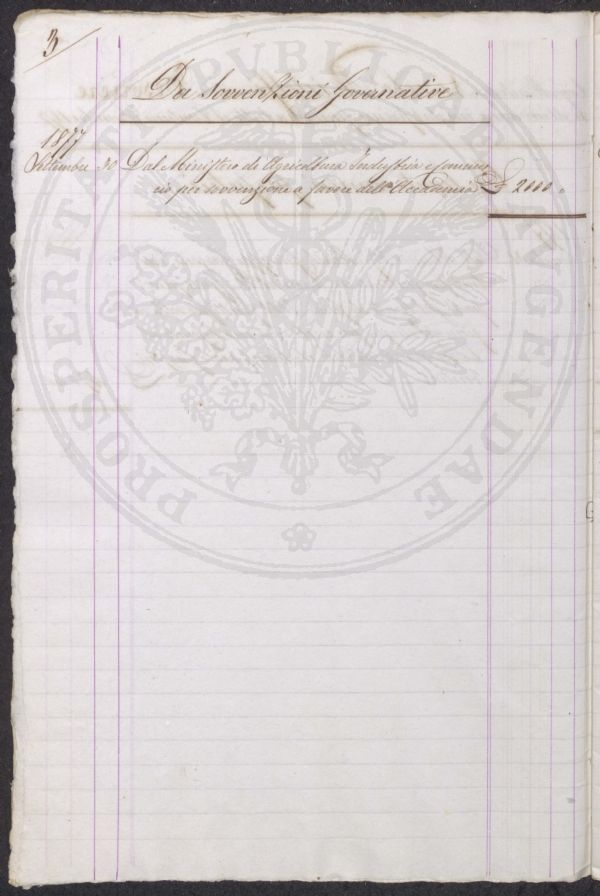 3
Da Sovvenzioni Governative
1877
Settembre 30 Dal Ministero di Agricoltura Industria e Commer
cio per sovvenzione a favore dell'Accademia £ 2000 "
PROSPERITATI PVBLICAE AVGENDAE